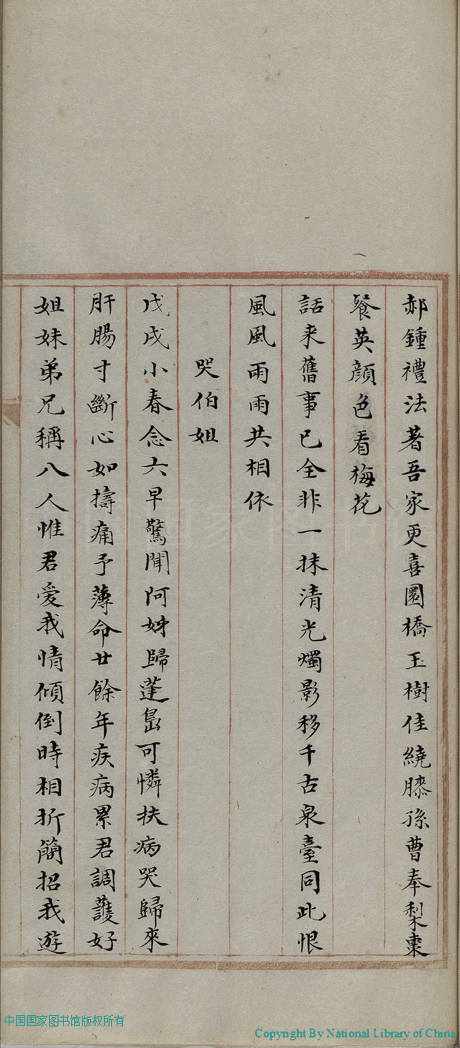 郝鍾禮法著吾家更喜圜橋玉樹佳繞膝孫曹奉梨棗
餐英顔色看梅花
話来舊事已全非一抹清光燭影移千古泉臺同此恨
風風雨雨共相依
哭伯姐
戊戌小春念六早驚聞阿姊歸蓬島可憐扶病哭歸來
肝腸寸斷心如擣痛予薄命廿餘年疾病累君調護好
姐妹弟兄稱八人惟君愛我情傾倒時相折簡招我遊
中国国家图书馆版权所有
Copyright By National Library of China